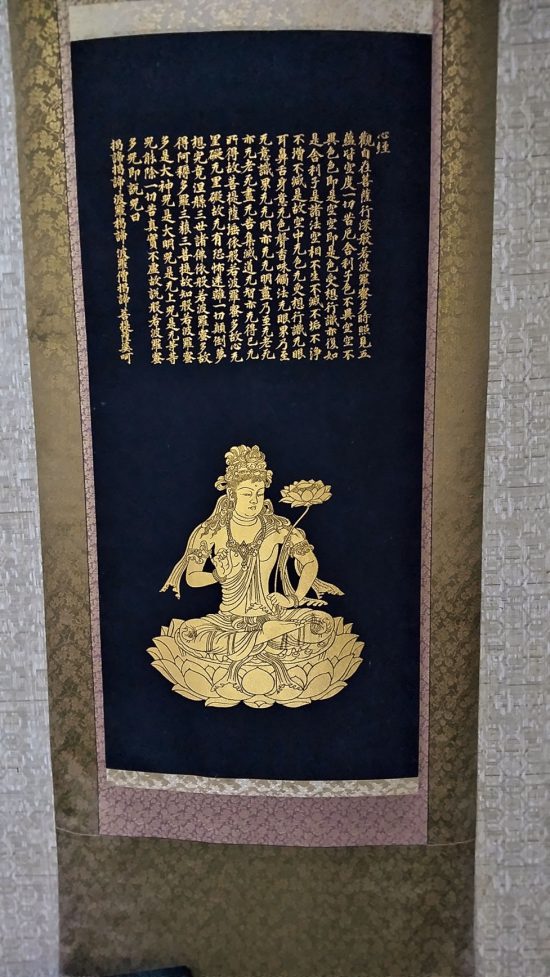 心經
觀自在菩薩行深般若波羅蜜多時照見五
蘊皆空度一切苦厄舍利子色不異空空不
異色色即是空空即是色受想行識亦復如
是舍利子是諸法空相不生不滅不垢不淨
不增不減是故空中无色无受想行識无眼
耳鼻舌身意无色聲香味觸法无眼界乃至
无意識界无无明亦无无明盡乃至无老死
亦无老死盡无苦集滅道无智亦无得以无
所得故菩提薩埵依般若波羅蜜多故心无
罣礙无罣礙故无有恐怖遠離一切顛倒夢
想究竟涅槃三世諸佛依般若波羅蜜多故
得阿耨多羅三藐三菩提故知般若波羅蜜
多是大神咒是大明咒是无上咒是无等等
咒能除一切苦真實不虛故說般若波羅蜜
多咒即說咒曰
揭諦揭諦 波羅揭諦 波羅僧揭諦 菩提